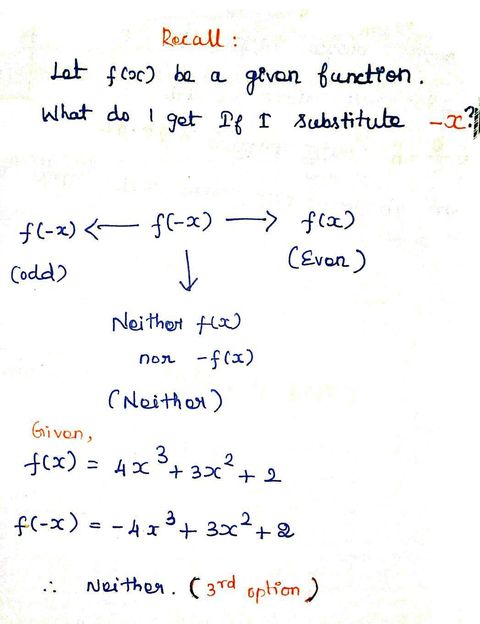 Recall :
Let f(x) be a given function.
What do I get If I substitute -x?
f(-x) ← f(-x) → f(x)
(odd) (Even)
↓
Neither f(x)
nor -f(x)
(Neither)
Given,
f(x) = 4x³ + 3x² + 2
f(-x) = -4x³ + 3x² + 2
∴ Neither. (3rd option)